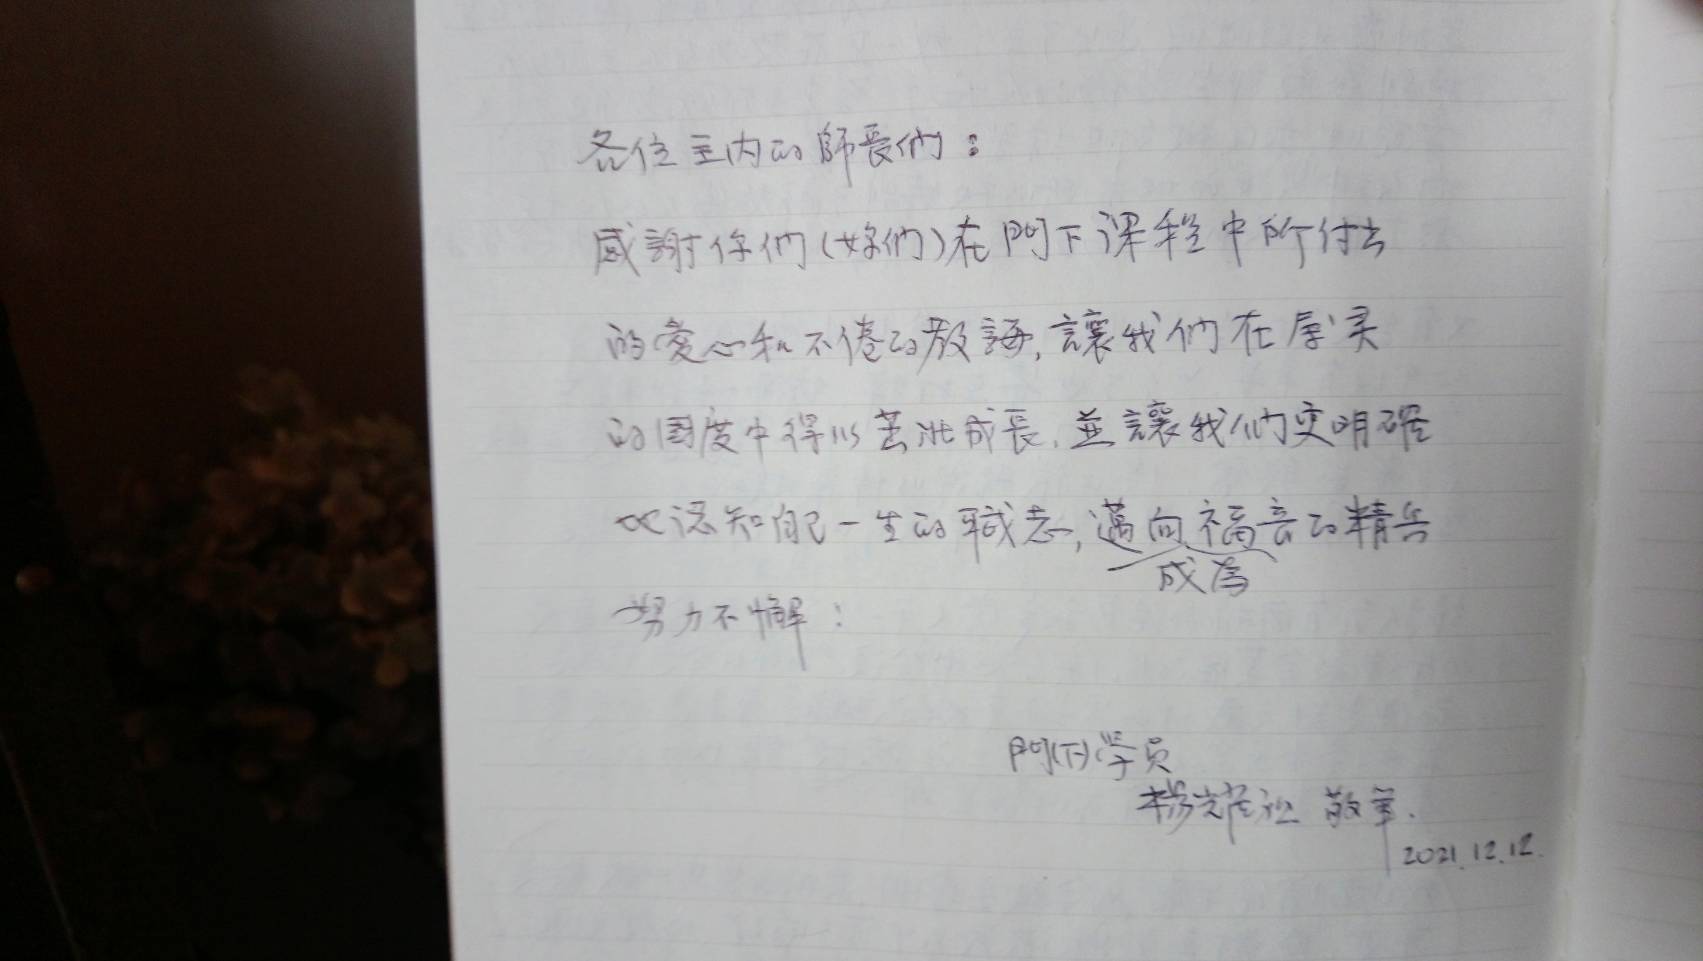 各位主内的師長們：
感謝你們(妳們)在門下课程中所付出
的愛心和不倦的教誨,讓我們在屬灵
的國度中得以茁壯成長,並讓我們更明確
地认知自己一生的職志,邁向福音的精兵
成為
努力不懈：
門(下)学员
楊耀 敬筆.
2021.12.12.